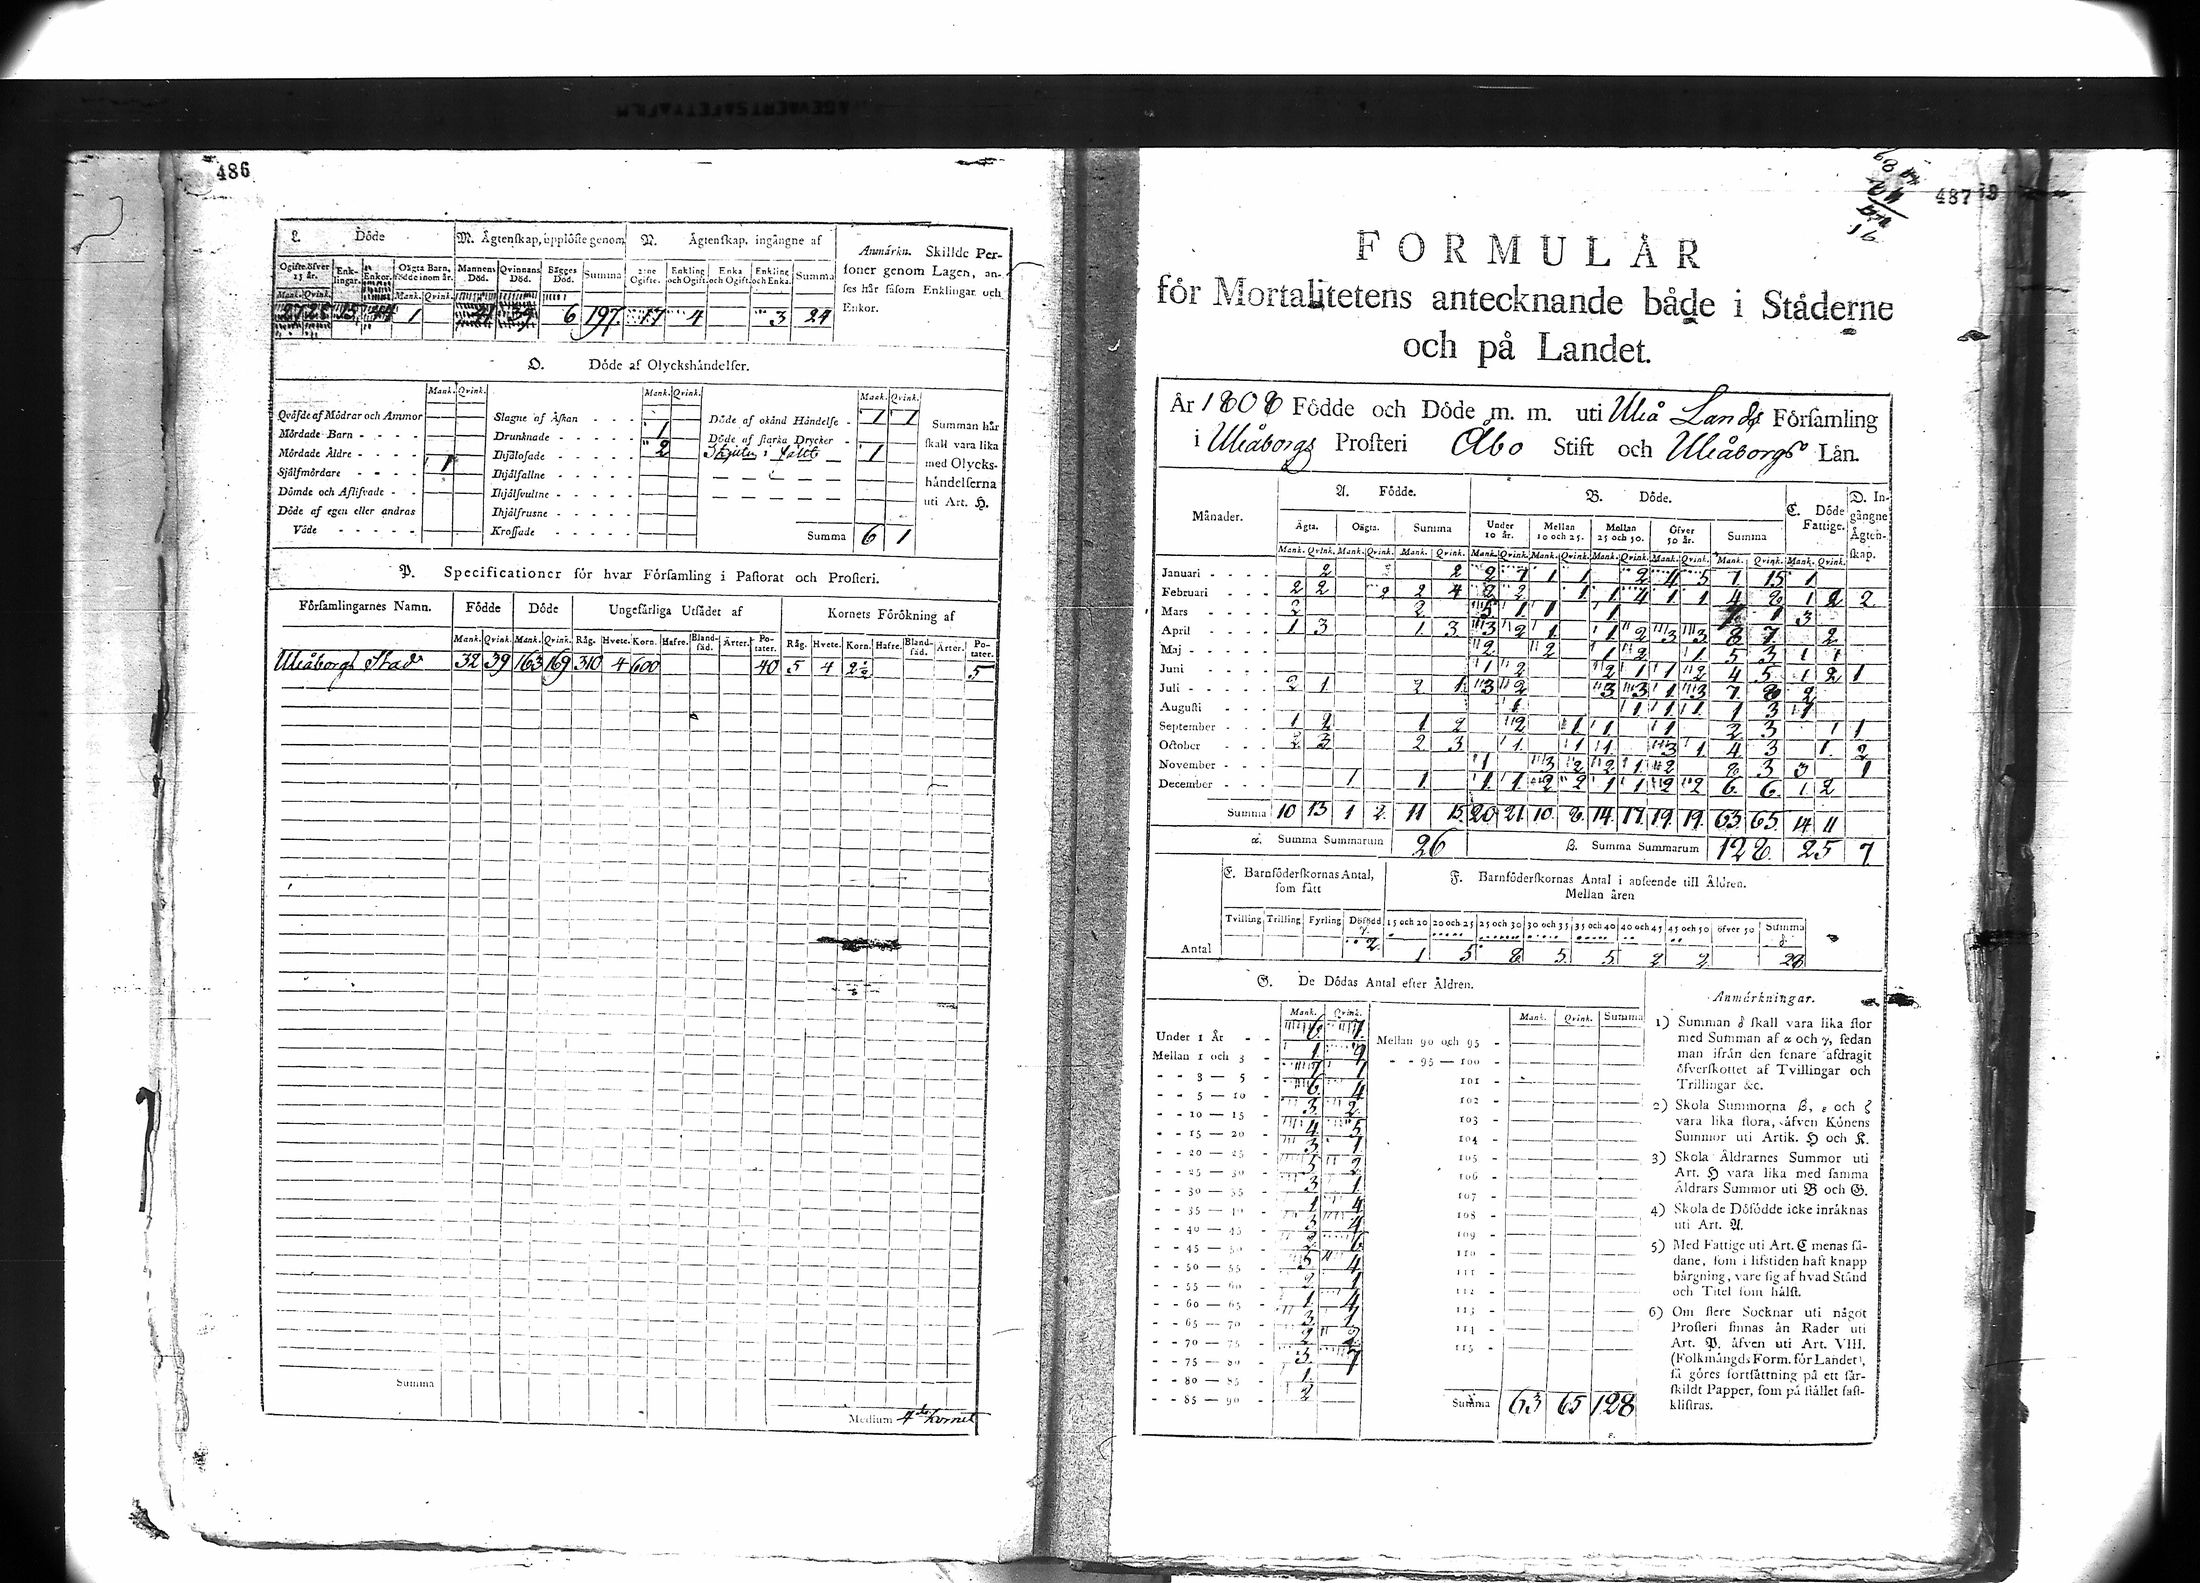 486
L. Döde
M. Ägtenskap, upplöste genom
N. Ägtenskap, ingångne af
Anmärkn. Skillde Personer genom Lagen, anses här såsom Enklingar och Enkor.
Ogifte öfver 15 år. Enklingar. Enkor. Oägta Barn, födde inom år. Mannens Död. Qvinnans Död. Bägges Död. Summa Enkling och Ogift. Enka och Ogift. Enkling och Enka. Summa
Mank. Qvink. Mank. Qvink.
1 39 6 197. 17 4 3 24
O. Döde af Olyckshändelser.
Mank. Qvink. Mank. Qvink. Mank. Qvink.
Qväfde af Mödrar och Ammor
Mördade Barn
Mördade Äldre
Sjelfmördare 1
Dömde och Aflifvade
Döde af egen eller andras Våde
Slagne af Åskan
Drunknade 1
Ihjälosade 2
Ihjälfallne
Ihjälsvultne
Ihjälfrusne
Krossade
Döde af okänd Händelse 1 1
Döde af starka Drycker
1
Summa 6 1
Summan här skall vara lika med Olyckshändelserna uti Art. H.
P. Specificationer för hvar Församling i Pastorat och Prosteri.
Församlingarnes Namn. Födde Döde Ungefärliga Utsädet af Kornets Förökning af
Mank. Qvink. Mank. Qvink. Råg. Hvete. Korn. Hafre. Blandsäd. Ärter. Potater. Råg. Hvete. Korn. Hafre. Blandsäd. Ärter. Potater.
Uleåborgs Stad 32 39 163 169 310 4 600 40 5 4 2½ 5
Summa
Medium 4de Kornet
487
FORMULÄR
för Mortalitetens antecknande både i Städerne
och på Landet.
År 1808 Födde och Döde m. m. uti Uleå Lands Församling
i Uleåborgs Prosteri Åbo Stift och Uleåborgs Län.
Månader.
A. Födde.
B. Döde.
C. Döde Fattige.
D. Ingångne Ägtenskap.
Ägta. Oägta. Summa Under 10 år. Mellan 10 och 25. Mellan 25 och 50. Öfver 50 år. Summa
Mank. Qvink. Mank. Qvink. Mank. Qvink. Mank. Qvink. Mank. Qvink. Mank. Qvink. Mank. Qvink. Mank. Qvink. Mank. Qvink.
Januari 2 2 2 7 1 1 2 4 5 7 15 1
Februari 2 2 2 2 4 2 2 1 1 4 1 1 4 8 1 2 2
Mars 2 2 5 1 1 1 1 3
April 1 3 1 3 3 2 1 1 2 3 3 8 7 2
Maj 2 2 1 2 1 5 3 1 1
Juni 1 2 2 1 1 2 4 5 1 2 1
Juli 2 1 2 1 3 2 3 3 1 3 7 8 2
Augusti 1 1 1 1 1 3 1
September 1 2 1 2 2 1 1 1 2 3 1 1
October 2 3 2 3 1 1 1 3 1 4 3 1 2
November 1 3 2 2 1 2 8 3 3 1
December 1 1 1 1 2 2 1 1 2 2 6 6 1 2
Summa 10 13 1 2 11 15 20 21 10 8 14 17 19 19 63 65 14 11
α. Summa Summarum 26 β. Summa Summarum 128. 25 7
E. Barnföderskornas Antal, som fått
F. Barnföderskornas Antal i anseende till Åldren.
Mellan åren
Tvilling Trilling Fyrling Dödfödd 15 och 20 20 och 25 25 och 30 30 och 35 35 och 40 40 och 45 45 och 50 öfver 50 Summa
Antal 2 1 5 8 5 5 2 2 28
G. De Dödas Antal efter Åldren.
Mank. Qvink. Mank. Qvink. Summa
Under 1 År 6 7
Mellan 1 och 3 1 9
3 — 5 7 1
5 — 10 6 4
10 — 15 3 2
15 — 20 4 5
20 — 25 3 1
25 — 30 5 2
30 — 35 3 1
35 — 40 1 4
40 — 45 3 4
45 — 50 2 6
50 — 55 5 4
55 — 60 2 1
60 — 65 1 4
65 — 70 3 1
70 — 75 2 2
75 — 80 3 7
80 — 85 1
85 — 90 2
Mellan 90 och 95
95 — 100
101
102
103
104
105
106
107
108
109
110
111
112
113
114
115
Summa 63 65 128
Anmärkningar.
1) Summan δ skall vara lika stor
med Summan af α och γ, sedan
man ifrån den senare afdragit
öfverskottet af Tvillingar och
Trillingar &c.
2) Skola Summorna β, ε och ζ
vara lika stora, äfven Könens
Summor uti Artik. H och K.
3) Skola Åldrarnes Summor uti
Art. H vara lika med samma
Åldrars Summor uti B och G.
4) Skola de Döfödde icke inräknas
uti Art. A.
5) Med Fattige uti Art. C menas sådane,
som i lifstiden haft knapp
bärgning, vare sig af hvad Stånd
och Titel som hälst.
6) Om flere Socknar uti något
Prosteri finnas än Rader uti
Art. P. äfven uti Art. VIII.
(Folkmängds Form. för Landet),
så göres fortsättning på ett särskildt
Papper, som på stället fastklistras.